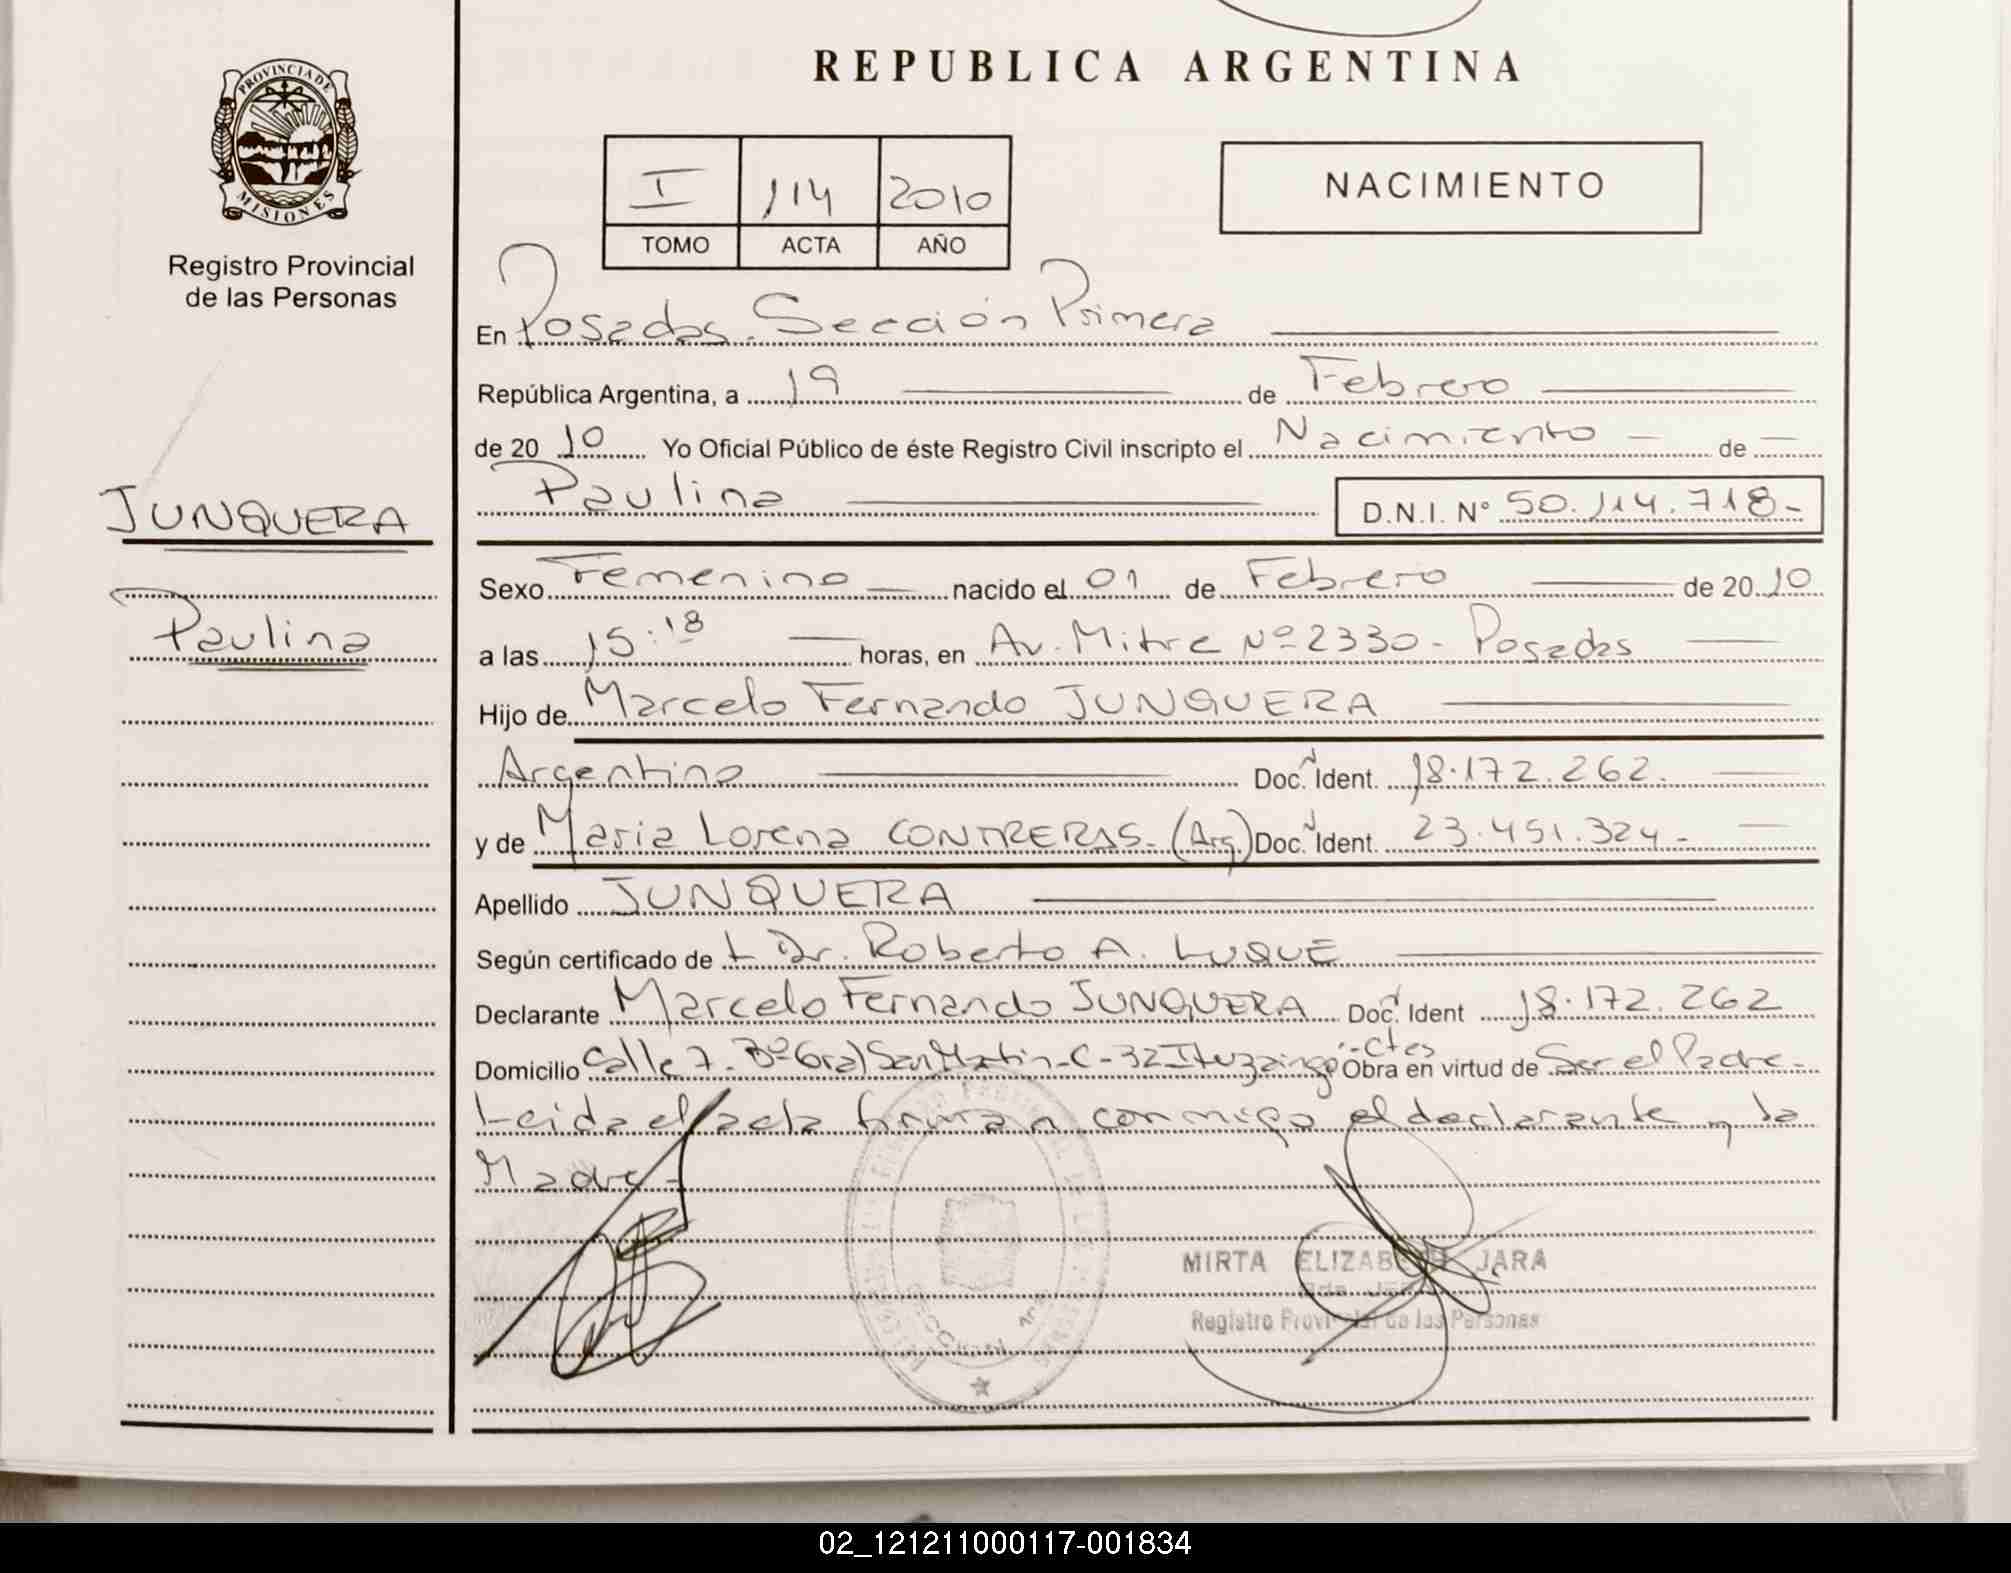 PROVINCIA DE
MISIONES
Registro Provincial
de las Personas
JUNQUERA
Paulina
REPUBLICA ARGENTINA
I 114 2010
TOMO ACTA AÑO
NACIMIENTO
En Posadas. Sección Primera
República Argentina, a 19 de Febrero
de 2010 Yo Oficial Público de éste Registro Civil inscripto el Nacimiento de
Paulina D.N.I. N° 50.114.718-
Sexo Femenino nacido el 01 de Febrero de 2010
a las 15:18 horas, en Av. Mitre Nº 2330 - Posadas
Hijo de Marcelo Fernando JUNQUERA
Argentino Doc. Ident. 18.172.262.
y de Maria Lorena CONTRERAS. (Arg.) Doc. Ident. 23.451.324-
Apellido JUNQUERA
Según certificado de L Dr. Roberto A. LUQUE
Declarante Marcelo Fernando JUNQUERA Doc. Ident 18.172.262
Domicilio Calle 7. Bº Gral San Martin-C-32 Ituzaingó-Ctes Obra en virtud de Ser el Padre-
Leida el acta firman conmigo el declarante y la
Madre-
MIRTA ELIZABETH JARA
Registro Provincial de las Personas
02_121211000117-001834